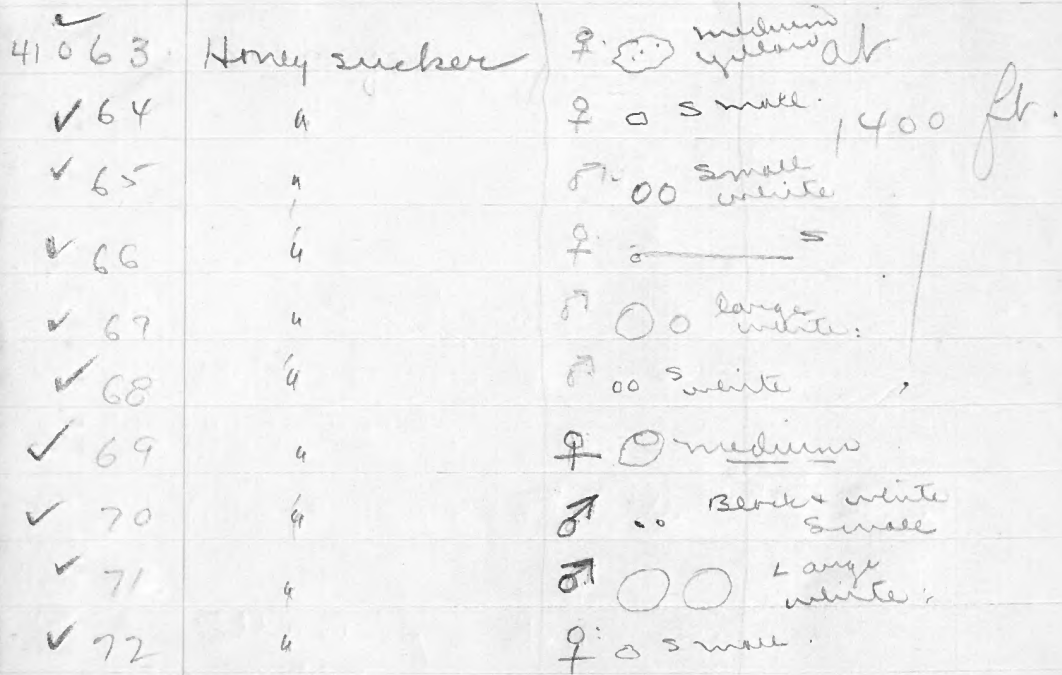 ✓ 41063 Honey sucker ♀. medium yellow at
✓ 64 " ♀ o small. 1400 ft.
✓ 65 " ♂. small white
✓ 66 " ♀ s
✓ 67 " ♂ large white.
✓ 68 " ♂ s white
✓ 69 " ♀ medium
✓ 70 " ♂ Black & white small
✓ 71 " ♂ Large white.
✓ 72 " ♀ small.